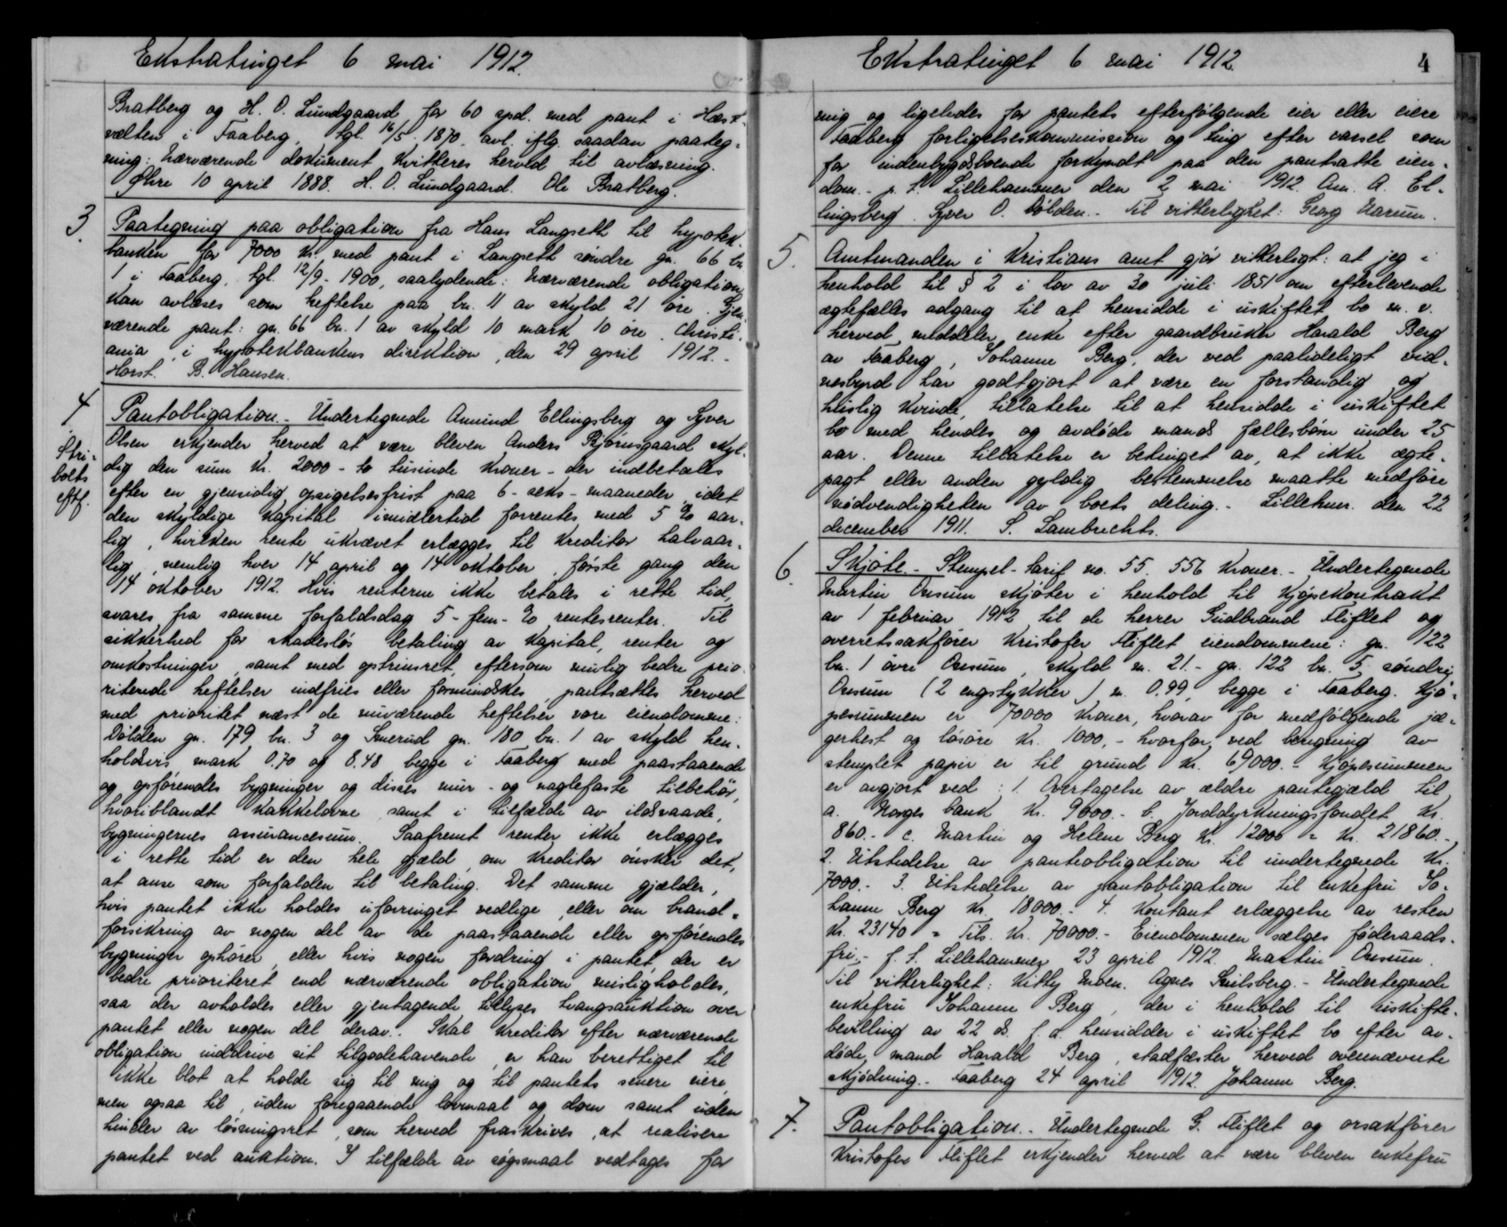 Ekstratinget 6 mai 1912.
Bratberg og H. O. Lundgaard for 60 spd. med pant i Hærst-
vælten i Faaberg, tgl. 16/5 1870, avl. iflg. saadan paateg-
ning: Nærværende dokument kvitteres herved til avlæsning.
Øhre 10 april 1888. H. O. Lundgaard. Ole Bratberg.
3. Paategning paa obligation fra Hans Langseth til hypotek-
banken for 7000 kr. med pant i Langseth søndre gn. 66 bn.
1 i Faaberg, tgl. 12/9 1900, saalydende: Nærværende obligation
kan avlæses som heftelse paa bn. 11 av skyld 21 øre. Gjen-
værende pant: gn. 66 bn. 1 av skyld 10 mark 10 øre. Christi-
ania, i hypotekbankens direktion, den 29 april 1912.-
Horst. B. Hansen.
4. Pantobligation.- Undertegnede Amund Ellingsberg og Syver
Olsen erkjender herved at være bleven Anders Bjørnsgaard skyl-
dig den sum kr. 2000 - to tusinde kroner - der indbetales
efter en gjensidig opsigelsesfrist paa 6 - seks - maaneder, idet
den skyldige kapital imidlertid forrentes med 5 % aar-
lig, hvilken rente ukrævet erlægges til kreditor halvaar-
lig, nemlig hver 14 april og 14 oktober, første gang den
14 oktober 1912. Hvis renterne ikke betales i rette tid,
svares fra samme forfaldsdag 5 - fem - % rentesrenter. Til
sikkerhed for skadesløs betaling av kapital, renter og
omkostninger, samt med opthinsret, eftersom mulig bedre prio-
riterede heftelser indfries eller formindskes, pantsættes herved
med prioritet næst de nuværende heftelser vore eiendomme:
Dølden gn. 179 bn. 3 og Smerud gn. 180 bn. 1 av skyld hen-
holdsvis mark 0.70 og 8.48 begge i Faaberg med paastaaende
og opførendes bygninger og disses mur- og naglefaste tilbehør,
hvoriblandt kakkelovne, samt i tilfælde av ildsvaade,
bygningernes assurancesum. Saafremt renter ikke erlægges
i rette tid er den hele gjæld, om kreditor ønsker det,
at anse som forfalden til betaling. Det samme gjælder,
hvis pantet ikke holdes uforringet vedlige, eller om brand-
forsikring av nogen del av de paastaaende eller opførendes
bygninger ophører eller hvis nogen fordring i pantet, der er
bedre prioriteret end nærværende obligation misligholdes,
saa der avholdes eller gjentagende tillyses tvangsauktion over
pantet eller nogen del derav. Skal kreditor efter nærværende
obligation inddrive sit tilgodehavende, er han berettiget til
ikke blot at holde sig til mig og til pantets senere eiere,
men ogsaa til, uden foregaaende lovmaal og dom samt uden
hinder av løsningsret, som herved fraskrives, at realisere
pantet ved auktion. I tilfælde av søgsmaal vedtages for
Ekstratinget 6 mai 1912.
4
mig og ligeledes for pantets efterfølgende eier eller eiere
Faaberg forligelseskommission og ting efter varsel som
for indenbygdsboende forkyndt paa den pantsatte eien-
dom.- p. t. Lillehammer den 2 mai 1912. Am. A. El-
lingsberg. Syver O. Dølden.- Til vitterlighet: Georg Aarum.
5. Amtmanden i Kristians amt gjør vitterligt: at jeg i
henhold til § 2 i lov av 30 juli 1851 om efterlevende
ægtefælles adgang til at hensidde i uskiftet bo m. v.
herved meddeler enke efter gaardbruker Harald Berg
av Faaberg, Johanne Berg, der ved paalideligt vid-
nesbyrd har godtgjort at være en forstandig og
huslig kvinde, tillatelse til at hensidde i uskiftet
bo med hendes og avdøde mands fællesbørn under 25
aar. Denne tillatelse er betinget av, at ikke ægte-
pagt eller anden gyldig bestemmelse maatte medføre
nødvendigheten av boets deling.- Lillehmr. den 22
december 1911. S. Lambrechts.
6. Skjøte.- Stempel-tarif no. 55. 556 kroner.- Undertegnede
Martin Onsum skjøter i henhold til kjøpekontrakt
av 1 februar 1912 til de herrer Gudbrand Fliflet og
overretssakfører Kristofer Fliflet eiendommene: gn. 122
bn. 1 øvre Onsum, skyld m. 21.- gn. 122 bn. 5 søndre
Onsum (2 engstykker) m. 0.99, begge i Faaberg. Kjø-
pesummen er 70000 kroner, hvorav for medfølgende jæ-
gerhest og løsøre kr. 1000,- hvorfor ved beregning av
stemplet papir er til grund kr. 69000.- Kjøpesummen
er avgjort ved: 1. Overtagelse av ældre pantegjæld til
a. Norges bank kr. 9000.- b. Jorddyrkningsfondet kr.
860.- c. Martin og Helene Berg kr. 12000 = kr. 21860.-
2. Utstedelse av panteobligation til undertegnede kr.
7000.- 3. Utstedelse av pantobligation til enkefru Jo-
hanne Berg kr. 18000.- 4. Kontant erlæggelse av resten
kr. 23140 = Tils. kr. 70000.- Eiendommen sælges føderaads-
fri.- p. t. Lillehammer 23 april 1912. Martin Onsum.
Til vitterlighet: Kitty Moen. Agnes Smilsberg.- Undertegnede
enkefru Johanne Berg, der i henhold til uskifte-
bevilling av 22 ds. f. å. hensidder i uskiftet bo efter av-
døde mand Harald Berg, stadfæster herved ovennævnte
skjødning.- Faaberg 24 april 1912. Johanne Berg.
7. Pantobligation.- Undertegnede G. Fliflet og orsakfører
Kristofer Fliflet erkjender herved at være bleven enkefru